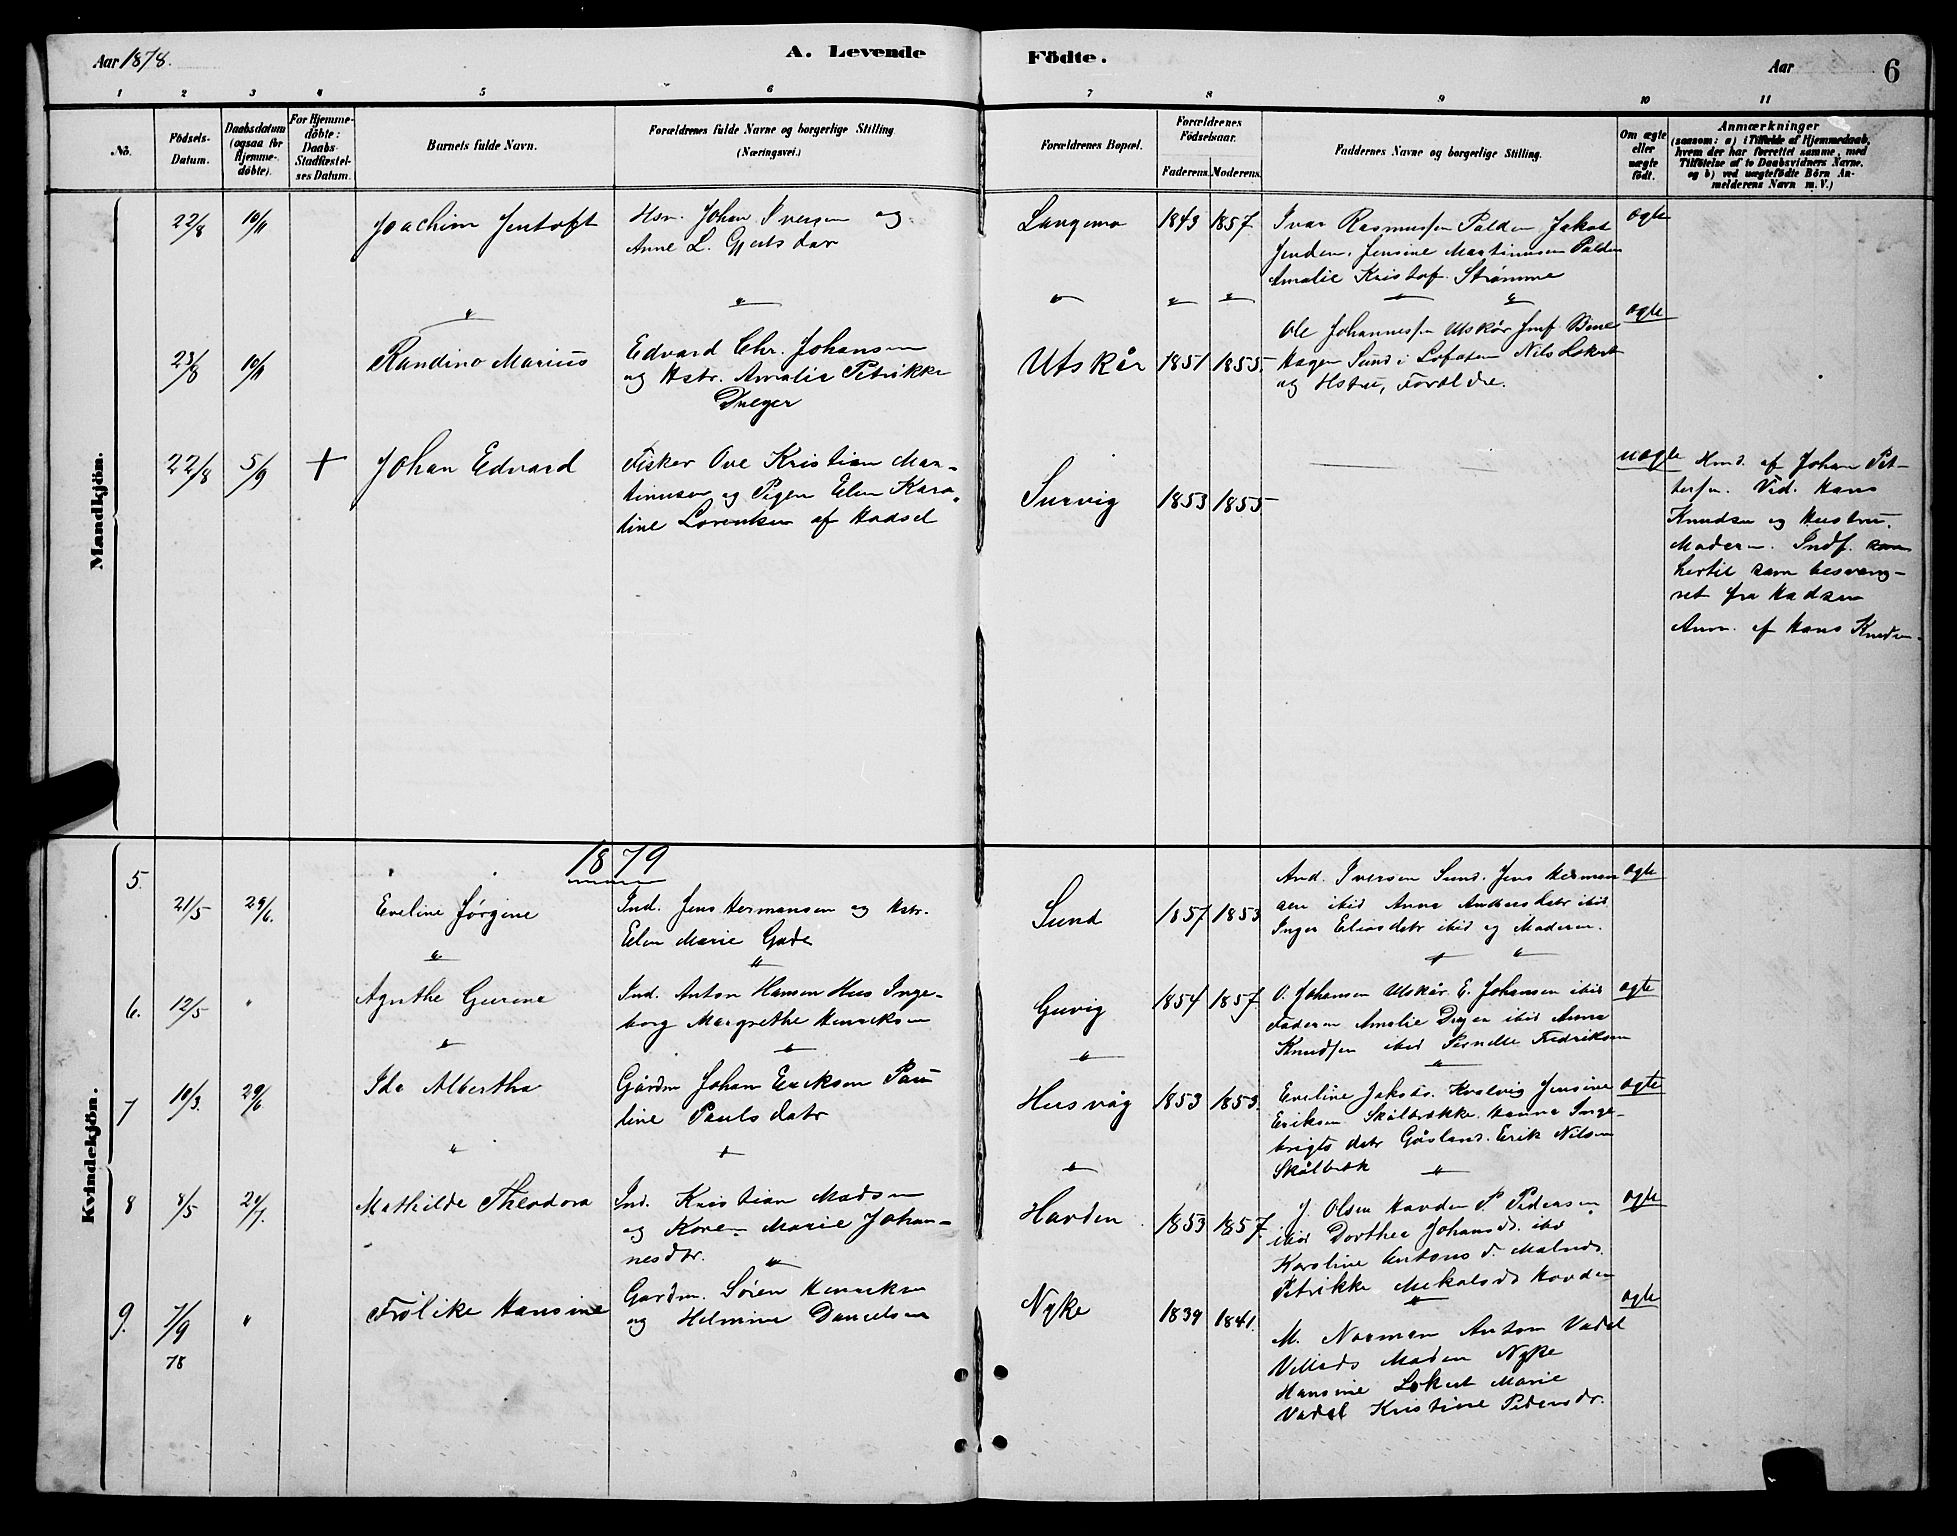 Aar 1878.
A. Levende
Födte.
Aar
6
1 2 3 4 5 6 7 8 9 10 11
No.
Födsels-
Datum.
Daabsdatum
(ogsaa for
Hjemme-
döbte).
For Hjemme-
döbte:
Daabs-
Stadfæstel-
ses Datum.
Barnets fulde Navn.
Forældrenes fulde Navne og borgerlige Stilling.
(Næringsvei.)
Forældrenes Bopæl.
Forældrenes
Födselsaar.
Faderens. Moderens.
Faddernes Navne og borgerlige Stilling.
Om ægte
eller
uægte
födt.
Anmærkninger
(saasom: a) i Tilfælde af Hjemmedaab,
hvem der har forrettet samme, med
Tilföielse af to Daabsvidners Navne.
og b) ved uægtefödte Börn An-
melderens Navn m. V.)
Mandkjön.
22/8 10/11 Joachim Jentoft
Hsm. Johan Iversen og
Anne L. Gjertsdar
Langmo 1843 1857
Ivar Rasmussen Palden Jakob
Jensine Martinusen Palden
Amalie Kristof. Strömme
ægte
23/8 10/11 Randino Marius
Edvard Chr. Johansen
og Hstr. Amalie Petrikke
Dreyer
Utskår 1851 1855.
Ole Johannessen Utskår Jmf
Hagen Sund i Lofoten Nils Lokert
og Hstru, Foreldre.
ægte
22/8 5/9 + Johan Edvard
Fisker Ove Kristian Mar-
tinusen og Pigen Elen Karo-
tine Lorentsen af Hadsel
Survig 1853 1855
uægte
Hmd. af Johan Pet-
tersen. Vid. Hans
Knudsen og Hustru.
Moderen. Indf.
hertil som besvang-
ret fra Hadsen
Anm. af Hans Knudsen
Kvindekjön.
1879
5. 21/5 29/6. Eveline Jørgine
Ind. Jens Hermansen og Hstr.
Elen Marie Gade
Sund 1857 1853
And. Iversen Sund. Jens Herman
sen ibid Anna Andersdatr ibid
Inger Eliasdatr ibid og Moderen.
ægte
6. 12/5 " Agnthe Gurine
Ind. Anton Hansen Hus Inge-
borg Margrethe Henriksen
Guvig 1854 1857.
O. Johansen Utskår. E. Johansen ibid
Faderen Amalie Dreyer ibid Anna
Knudsen ibid Pernelle Fedriksen
ægte
7 10/3. 29/6 Ida Albertha
Gårdm Johan Eriksen Pau
line Paulsdatr
Husvåg 1853 1853.
Eveline Jakobs. Kvalvig Jensine
Eriksen Skålbrække. Hanna Inge-
brigts datr Gåsland. Erik Nilsen
Skålbrek
ægte
8 8/5 24/7. Mathilde Theodora
Ind. Kristian Madsen
og Karen Marie Johan-
nesdtr.
Havden 1853 1857.
J. Olsen Havden P. Pedersen
ibid Dorthea Johansd. ibid
Karoline Antons d. Malnes.
Petrikke Mekalsd. Hovden
ægte
9. 7/9 " Frölike Hansine
78
Gardm. Sören Henriksen
og Helmine Danielsen
Nyke 1839 1841.
M. Norman Anton Vadel
Villads Madsen Nyke
Hansine Lokert Marie
Vadel Kristine Pedersdr.
ægte